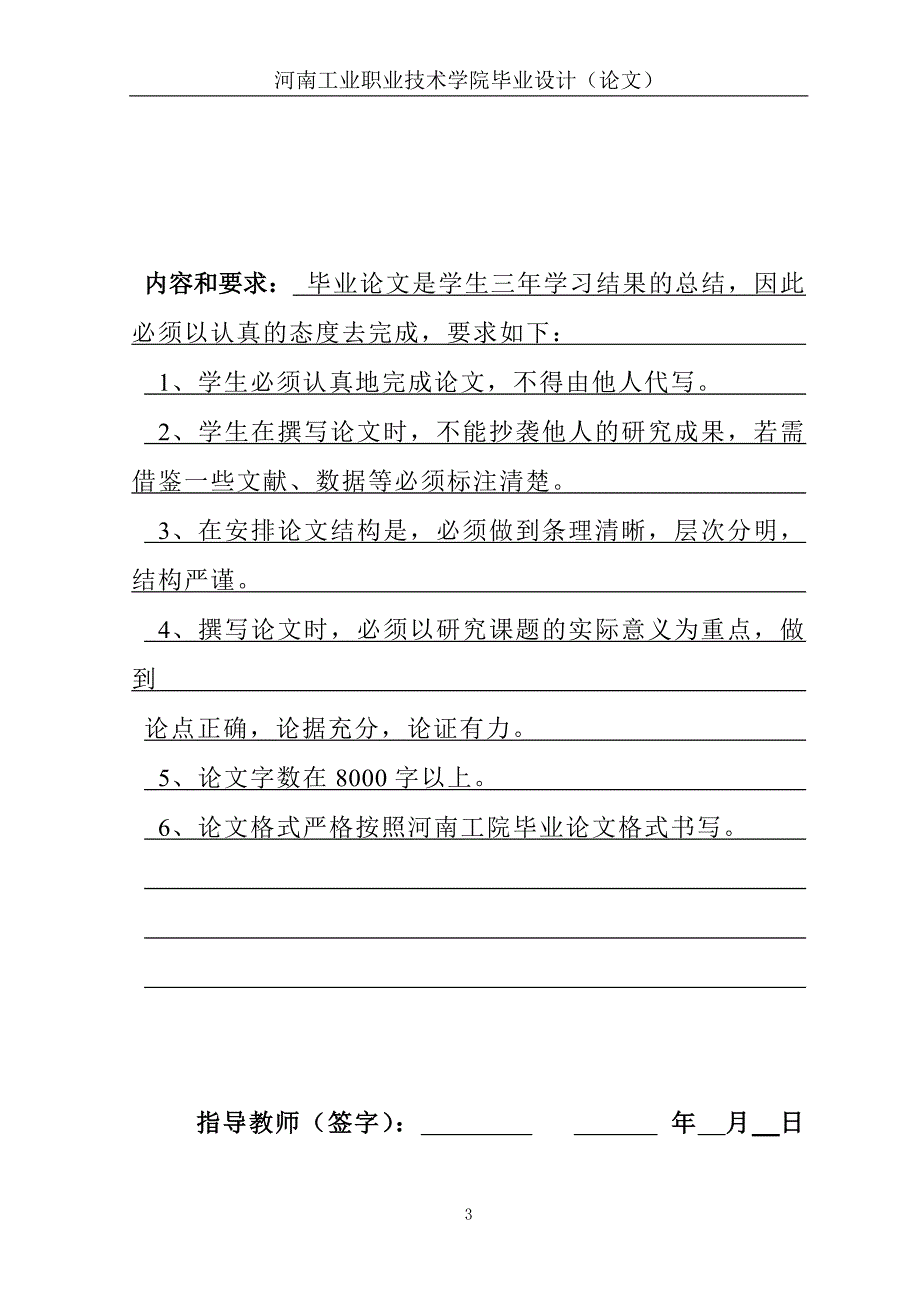 河南工业职业技术学院毕业设计（论文）
内容和要求： 毕业论文是学生三年学习结果的总结，因此
必须以认真的态度去完成，要求如下：
1、学生必须认真地完成论文，不得由他人代写。
2、学生在撰写论文时，不能抄袭他人的研究成果，若需
借鉴一些文献、数据等必须标注清楚。
3、在安排论文结构是，必须做到条理清晰，层次分明，
结构严谨。
4、撰写论文时，必须以研究课题的实际意义为重点，做
到
论点正确，论据充分，论证有力。
5、论文字数在 8000 字以上。
6、论文格式严格按照河南工院毕业论文格式书写。
指导教师（签字）：________ ______ 年__月__日
3